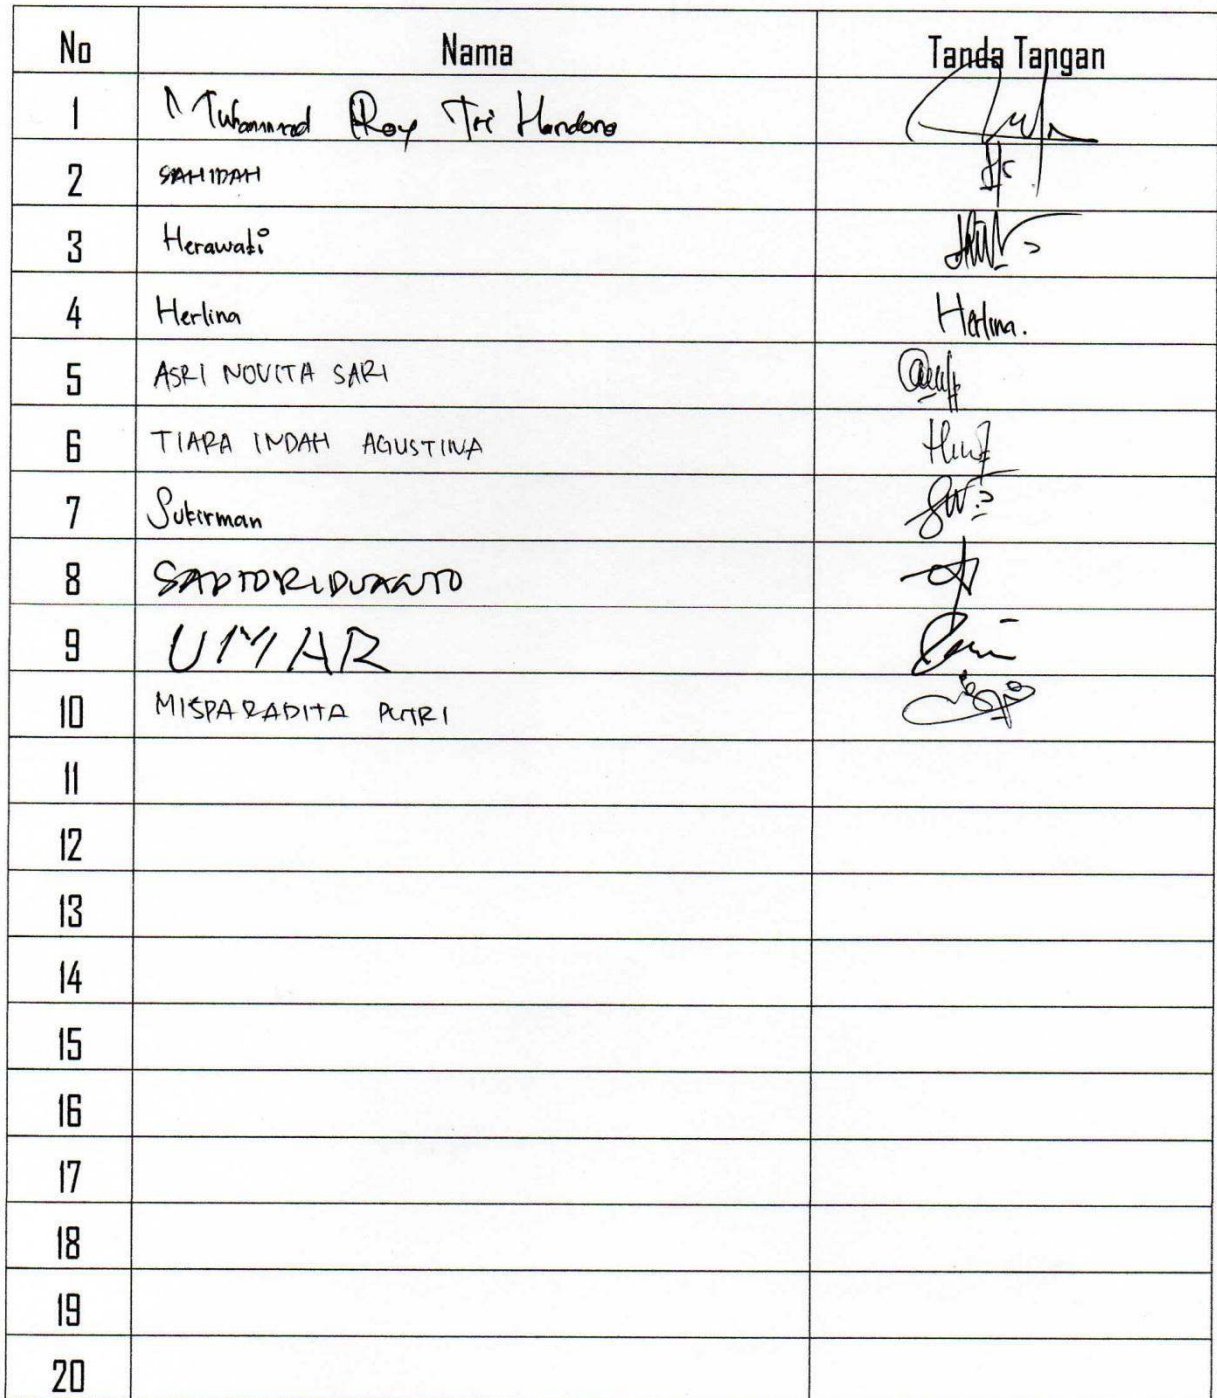 No Nama Tanda Tangan
1 Muhammad Roy Tri Handono
2 SAHIDAH
3 Herawati
4 Herlina Herlina.
5 ASRI NOVITA SARI
6 TIARA INDAH AGUSTINA
7 Sukirman
8
9 UMAR
10 MISPARADITA PUTRI
11
12
13
14
15
16
17
18
19
20